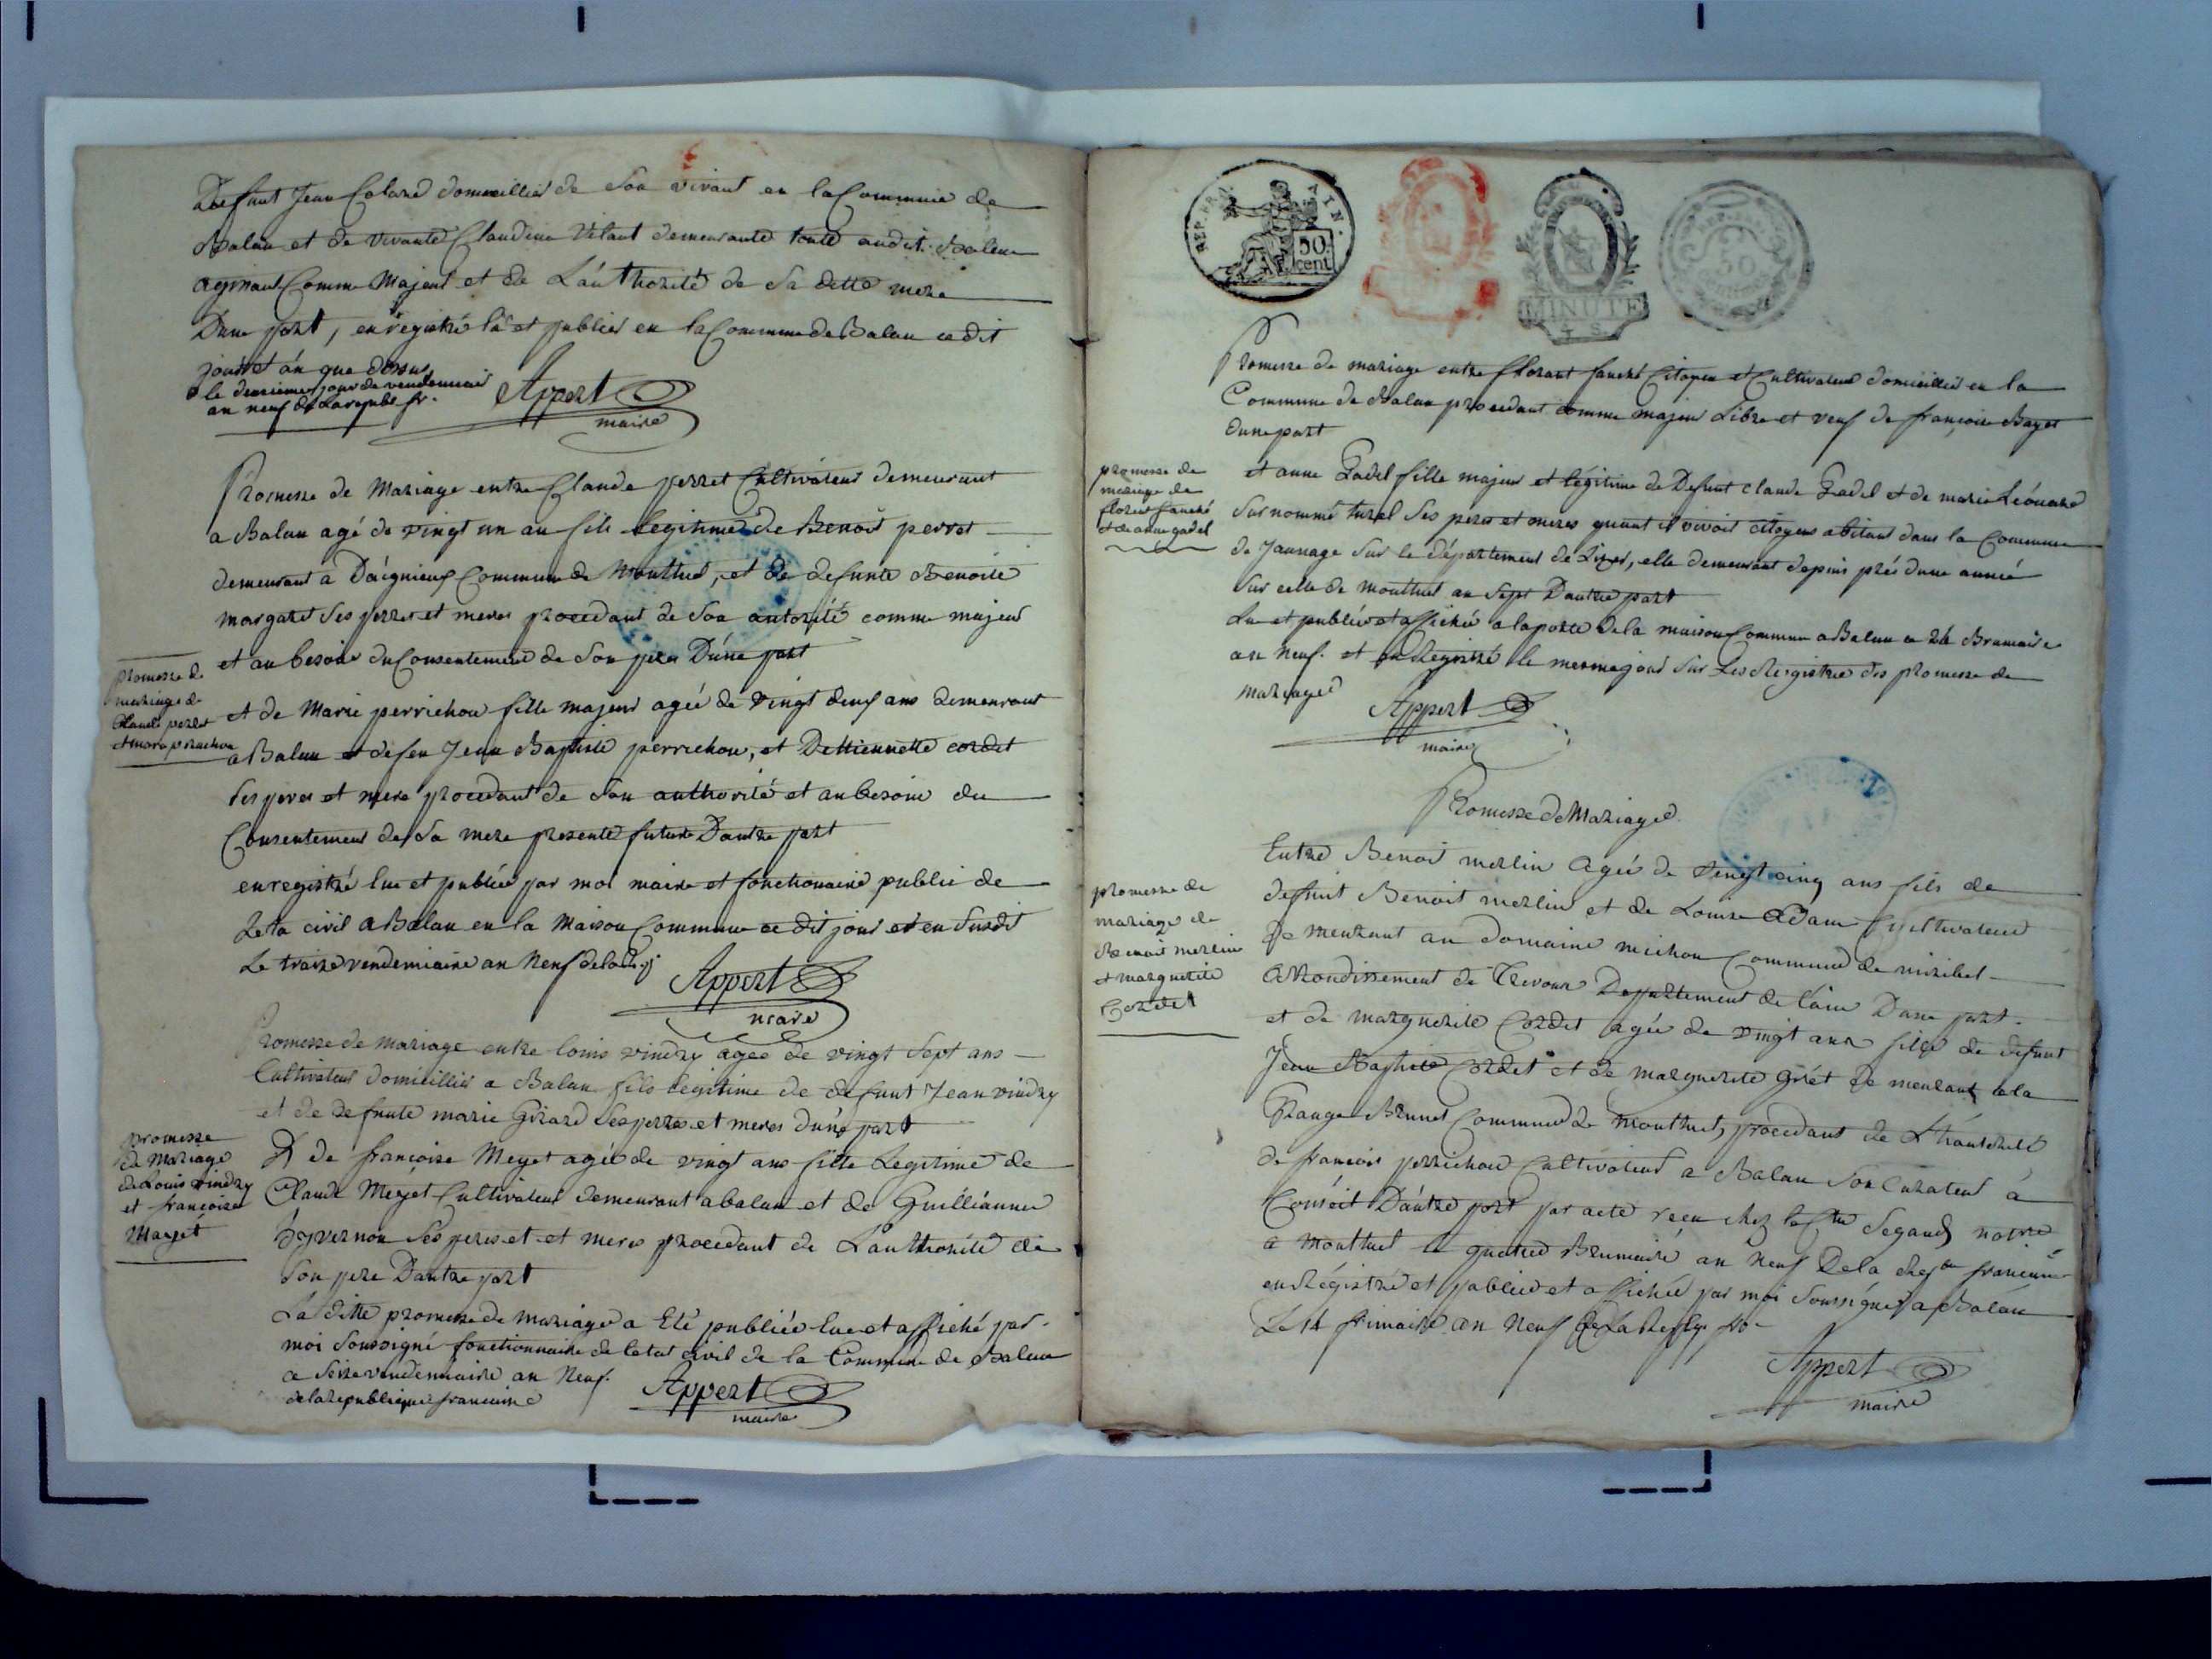 Defunt Jean Coland domicillié de Son vivant en la Commune de
Balan et de vivante Claudine Vitaut demeurante toute audit Balan
agissant Comme Majeur et de L'authorité de Sa ditte mere
Dune part, enregistré lû et publiés en la Commune de Balan ce dit
jours et ân que dessus
le deuxieme jour de vendemiair
an neuf de La repub. fr.
Appert
maire
Promesse de Mariage entre Claude perret Cultivateur demeurant
a Balan agé de vingt un an fils legitime de Benoit perret
demeurant a Daignieux Commune de Montluel, et de defunte Benoite
margaret Ses perres et meres procedant de Son autorité comme majeur
et au besoin du Consentement de Son pere D'une part
promesse de
mariage de
Claude perret
et marie perrichon
et de Marie perrichon fille majeur agée de vingt deux ans demeurant
a Balan et de feu Jean Baptiste perrichon, et Dettiennette cordet
Ses peres et mere procedant de Son authorité et au besoin du
Consentement de Sa mere presente future D'autre part
enregistré lue et publiée par moi maire et fonctionaire public de
Leta civil a Balan en la Maison Commune ce dit jour et en Susdit
Le traize vendemiaire an Neuf
Appert
maire
Promesse de mariage entre louis vindry agée de vingt Sept ans
Cultivateur domicilliés a Balan fils legitime de defunt Jean vindry
et de defunte marie Girard Ses perres et meres dune part
promesse
de Mariage
de Louis vindry
et françoise
Mayet
Et de françoise Meyet agée de vingt ans fille Legitime de
Claude Meyet Cultivateur demeurant a balan et de Guillianne
Ses peres et et meres procedant de L'authorité de
Son pere D'autre part
La ditte promesse de mariage a Eté publiée lue et affiché par
moi Soussigné fonctionnaire de letat civil de la Commune de Balan
ce Seize vendemiaire an Neuf
de la republique francaine
Appert
maire
REP. FRA. AIN.
50
cent
MINUTE
4 S.
50
Promesse de mariage entre florent fauché Citoyen et Cultivateur domicilliés en la
Commune de Balan procedant comme majeur Libre et veuf de françoise Bayet
dune part
promesse de
mariage de
florent fauché
et de anne gadel
et anne Gadel fille majeur et légitime de Defunt claude Gadel et de marie Léonard
Sur nommé tural Ses peres et meres quant il vivoit citoyens abitans dans la Commune
de Jaunage Sur le département de Lizer, elle demeurant depuis prés dune année
Sur celle de montluel au Sept D'autre part
Lu et publiée et affichée a la porte de la maison Commune a Balan ce 24 Brumaire
an neuf. et en Registré le meme jour Sur Les Registre des promesse de
mariages
Appert
maire
Promesse de Mariage
promesse de
mariage de
Benoit merlin
et marguerite
Cordet
Entre Benoit merlin Agée de vingt cinq ans fils de
defunt Benoit merlin et de Louise Adam Cultivateur
De meurant au domaine michon Commune de miribel
arrondissement de Trevoux Departement de l'ain D'une part
et de marguerite Cordet agée de vingt ans fille de defunt
Jean Baptiste Cordet et de marguerite Griet De meurant a la
Grange Brunet Commune de montluel, procedant de L'hautorité
de francois perrichon Cultivateur a Balan Son Curateur á
Conseit D'autre part par acte reçu chez le Cten Segaud notre
a montluel le quatre Brumaire an neuf De la Repub francaine
en Régistré et publiée et affichée par moi Soussigné a Balan
Le 14 frimaire an neuf de La Repub. fr.
Appert
maire